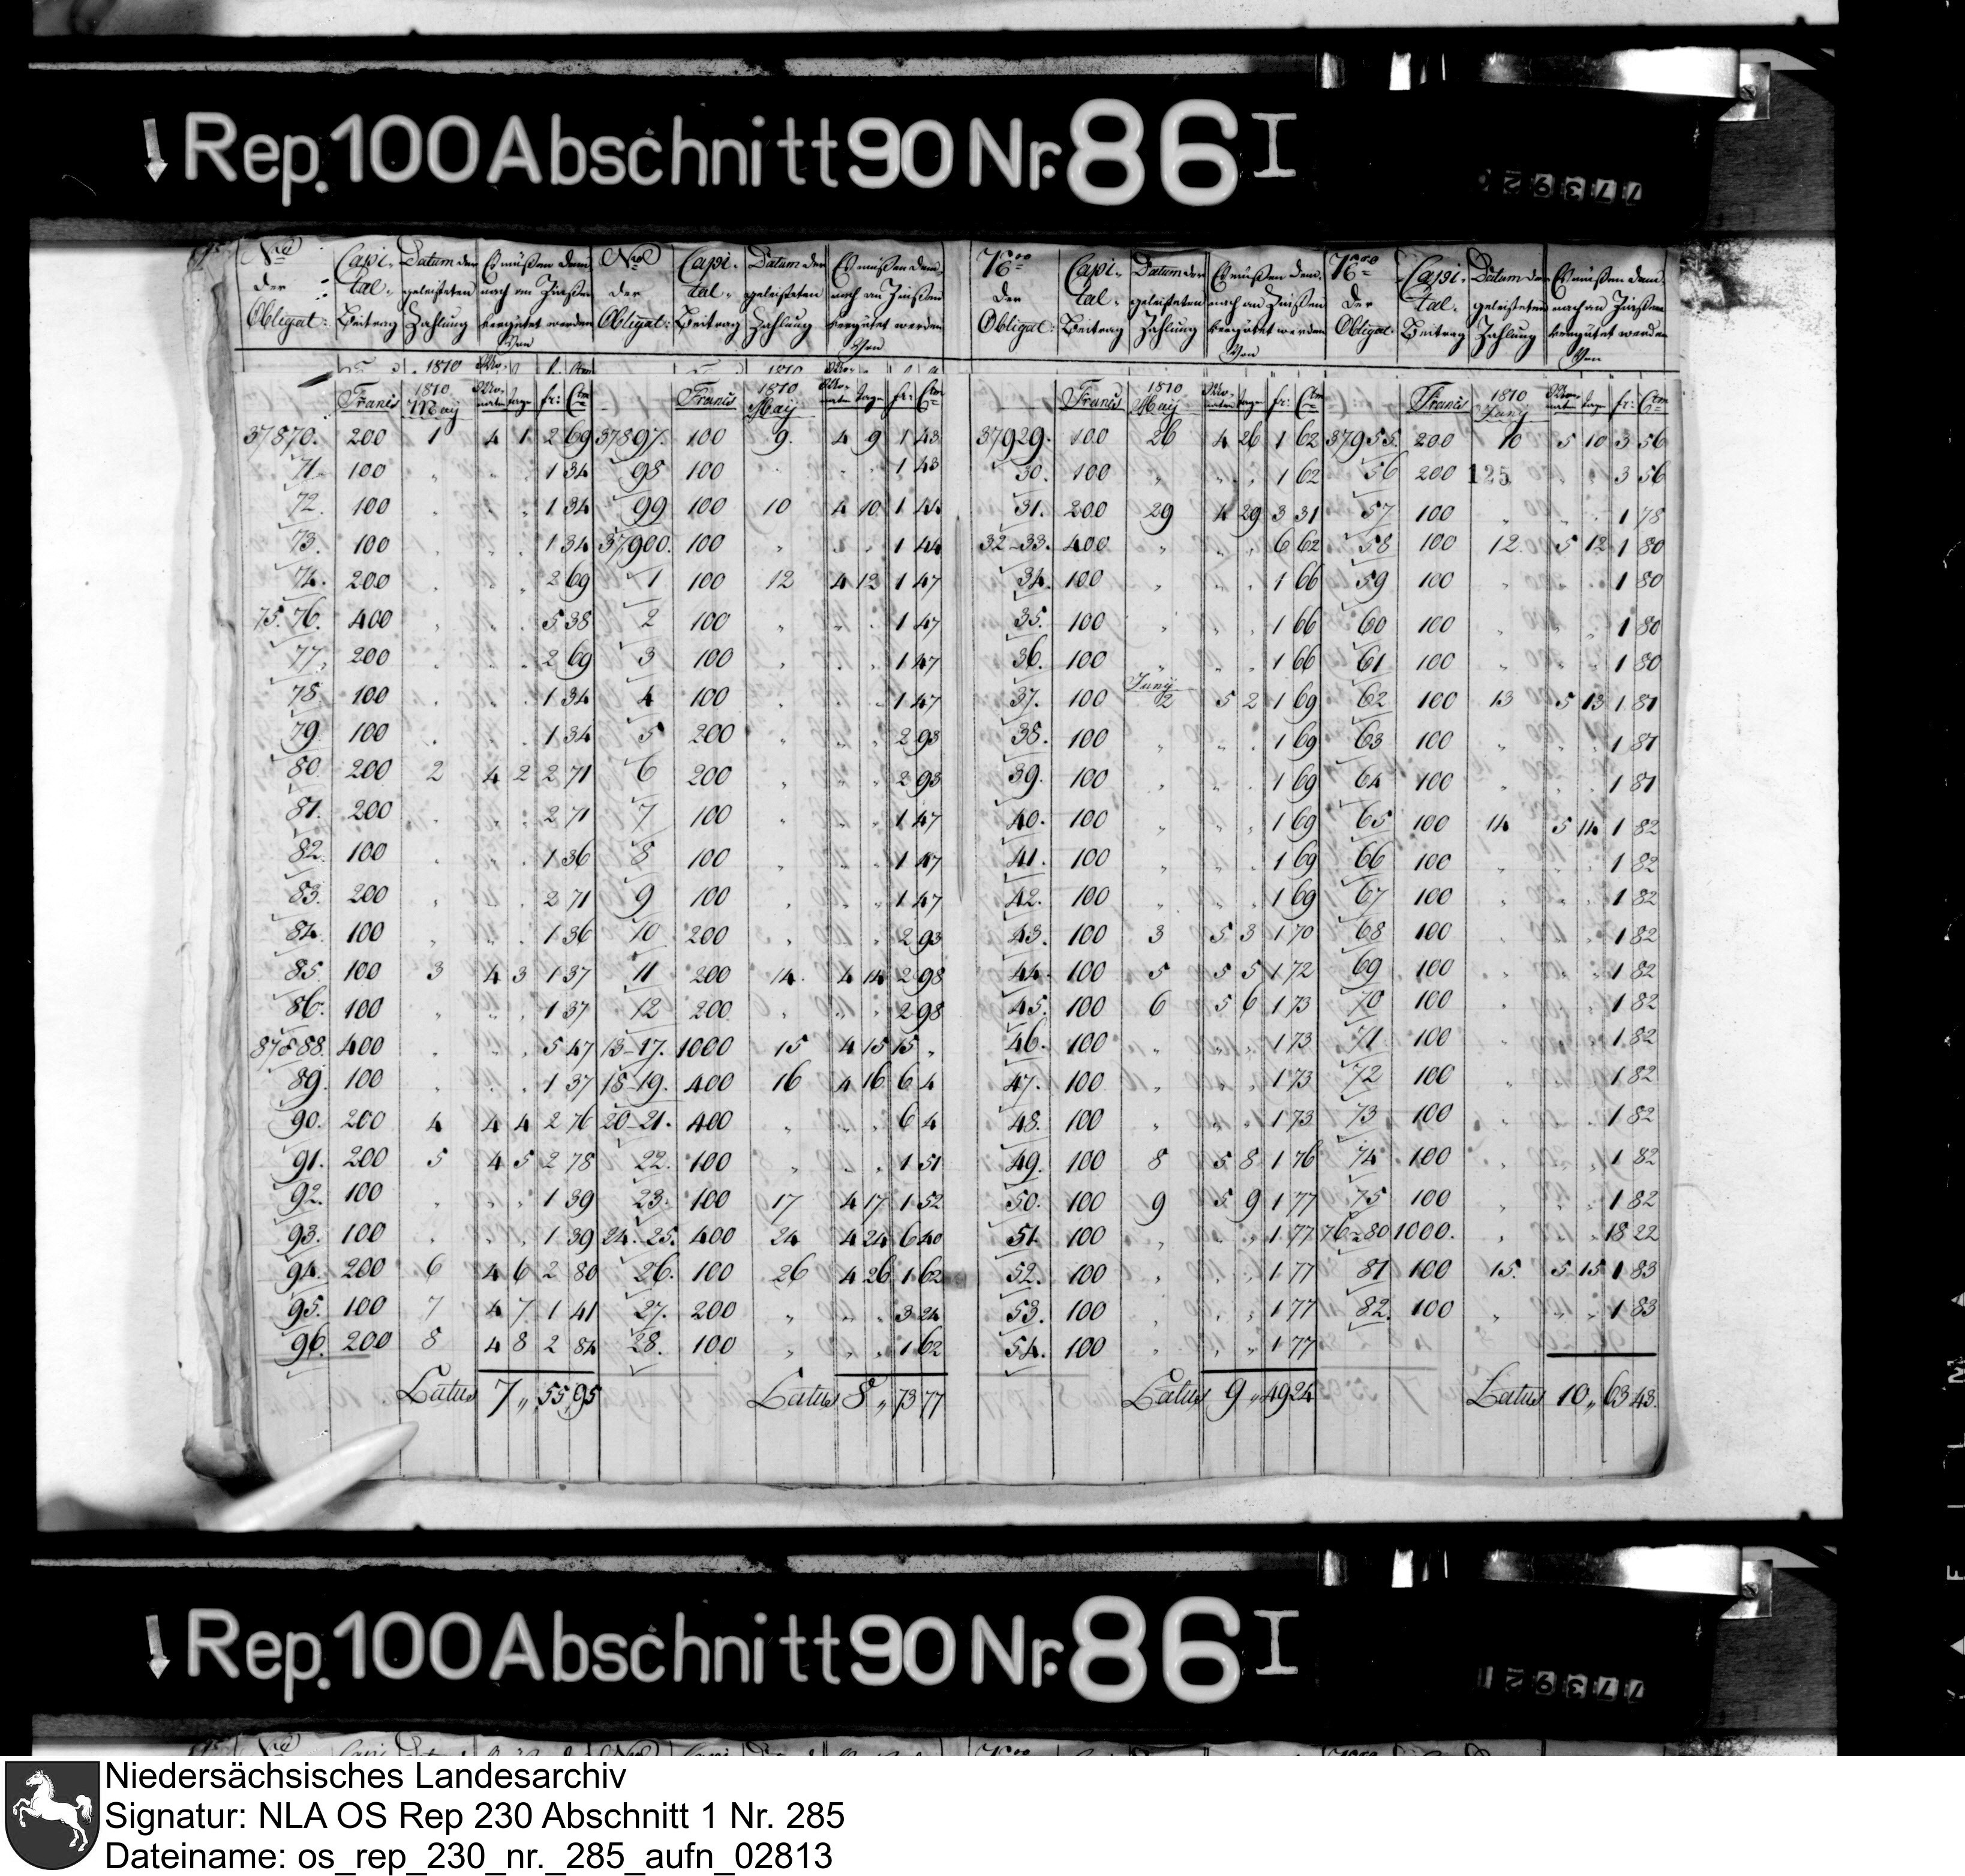 Rep. 100 Abschnitt 90 Nr. 86 I
773920
Nro Capi- Datum der Es müßen dem- Nro Capi- Datum der Es müßen dem- Nro Capi- Datum der Es müßen dem- Nro Capi- Datum der Es müßen dem-
der tal- geleisteten nach an Zinßen der tal- geleisteten nach an Zinßen der tal- geleisteten nach an Zinßen der tal- geleisteten nach an Zinßen
Obligat: Beitrag Zahlung vergütet werden Obligat: Beitrag Zahlung vergütet werden Obligat: Beitrag Zahlung vergütet werden Obligat: Beitrag Zahlung vergütet werden
Von Von Von Von
1810 1810
Francs 1810 May Monaten tage fr: Ctm Francs 1810 May Monaten tage fr: Ctm Francs 1810 May Monaten tage fr: Ctm Francs 1810 Juny Monaten tage fr: Ctm
37870. 200 1 4 1 2 69 37897. 100 9. 4 9 1 43 37929. 100 26 4 26 1 62 37955. 200 10 5 10 3 56
71. 100 " " " 1 34 98 100 " " " 1 43 30. 100 " " " 1 62 56 200 125 " " 3 56
72. 100 " " " 1 34 99 100 10 4 10 1 44 31. 200 29 4 29 3 31 57 100 " " " 1 78
73. 100 " " " 1 34 37900. 100 " " " 1 44 32-33. 400 " " " 6 62 58 100 12. 5 12 1 80
74. 200 " " " 2 69 1 100 12 4 12 1 47 34. 100 " " " 1 66 59 100 " " " 1 80
75.76. 400 " " " 5 38 2 100 " " " 1 47 35. 100 " " " 1 66 60 100 " " " 1 80
77. 200 " " " 2 69 3 100 " " " 1 47 36. 100 " " " 1 66 61 100 " " " 1 80
78. 100 " " " 1 34 4 100 " " " 1 47 37. 100 Juny 2 5 2 1 69 62 100 13 5 13 1 81
79. 100 " " " 1 34 5 200 " " " 2 93 38. 100 " " " 1 69 63 100 " " " 1 81
80. 200 2 4 2 2 71 6 200 " " " 2 93 39. 100 " " " 1 69 64 100 " " " 1 81
81. 200 " " " 2 71 7 100 " " " 1 47 40. 100 " " " 1 69 65 100 14 5 14 1 82
82. 100 " " " 1 36 8 100 " " " 1 47 41. 100 " " " 1 69 66 100 " " " 1 82
83. 200 " " " 2 71 9 100 " " " 1 47 42. 100 " " " 1 69 67 100 " " " 1 82
84. 100 " " " 1 36 10 200 " " " 2 93 43. 100 3 5 3 1 70 68 100 " " " 1 82
85. 100 3 4 3 1 37 11 200 14. 4 14 2 98 44. 100 5 5 5 1 72 69 100 " " " 1 82
86. 100 " " " 1 37 12 200 " " " 2 98 45. 100 6 5 6 1 73 70 100 " " " 1 82
87&88. 400 " " " 5 47 13-17. 1000 15 4 15 15 " 46. 100 " " " 1 73 71 100 " " " 1 82
89. 100 " " " 1 37 18-19. 400 16 4 16 6 4 47. 100 " " " 1 73 72 100 " " " 1 82
90. 200 4 4 4 2 76 20-21. 400 " " " 6 4 48. 100 " " " 1 73 73 100 " " " 1 82
91. 200 5 4 5 2 78 22. 100 " " " 1 51 49. 100 8 5 8 1 76 74 100 " " " 1 82
92. 100 " " " 1 39 23. 100 17 4 17 1 52 50. 100 9 5 9 1 77 75 100 " " " 1 82
93. 100 " " " 1 39 24. 25. 400 24 4 24 6 40 51. 100 " " " 1 77 76-80 1000. " " " 18 22
94. 200 6 4 6 2 80 26. 100 26 4 26 1 62 52. 100 " " " 1 77 81 100 15. 5 15 1 83
95. 100 7 4 7 1 41 27. 200 " " " 3 24 53. 100 " " " 1 77 82. 100 " " " 1 83
96. 200 8 4 8 2 84 28. 100 " " " 1 62 54. 100 " " " 1 77
Latus 7 " 55,95 Latus 8 " 73 77 Latus 9 " 49 24 Latus 10 " 63 43.
Rep. 100 Abschnitt 90 Nr. 86 I
773921
Niedersächsisches Landesarchiv
Signatur: NLA OS Rep 230 Abschnitt 1 Nr. 285
Dateiname: os_rep_230_nr._285_aufn_02813